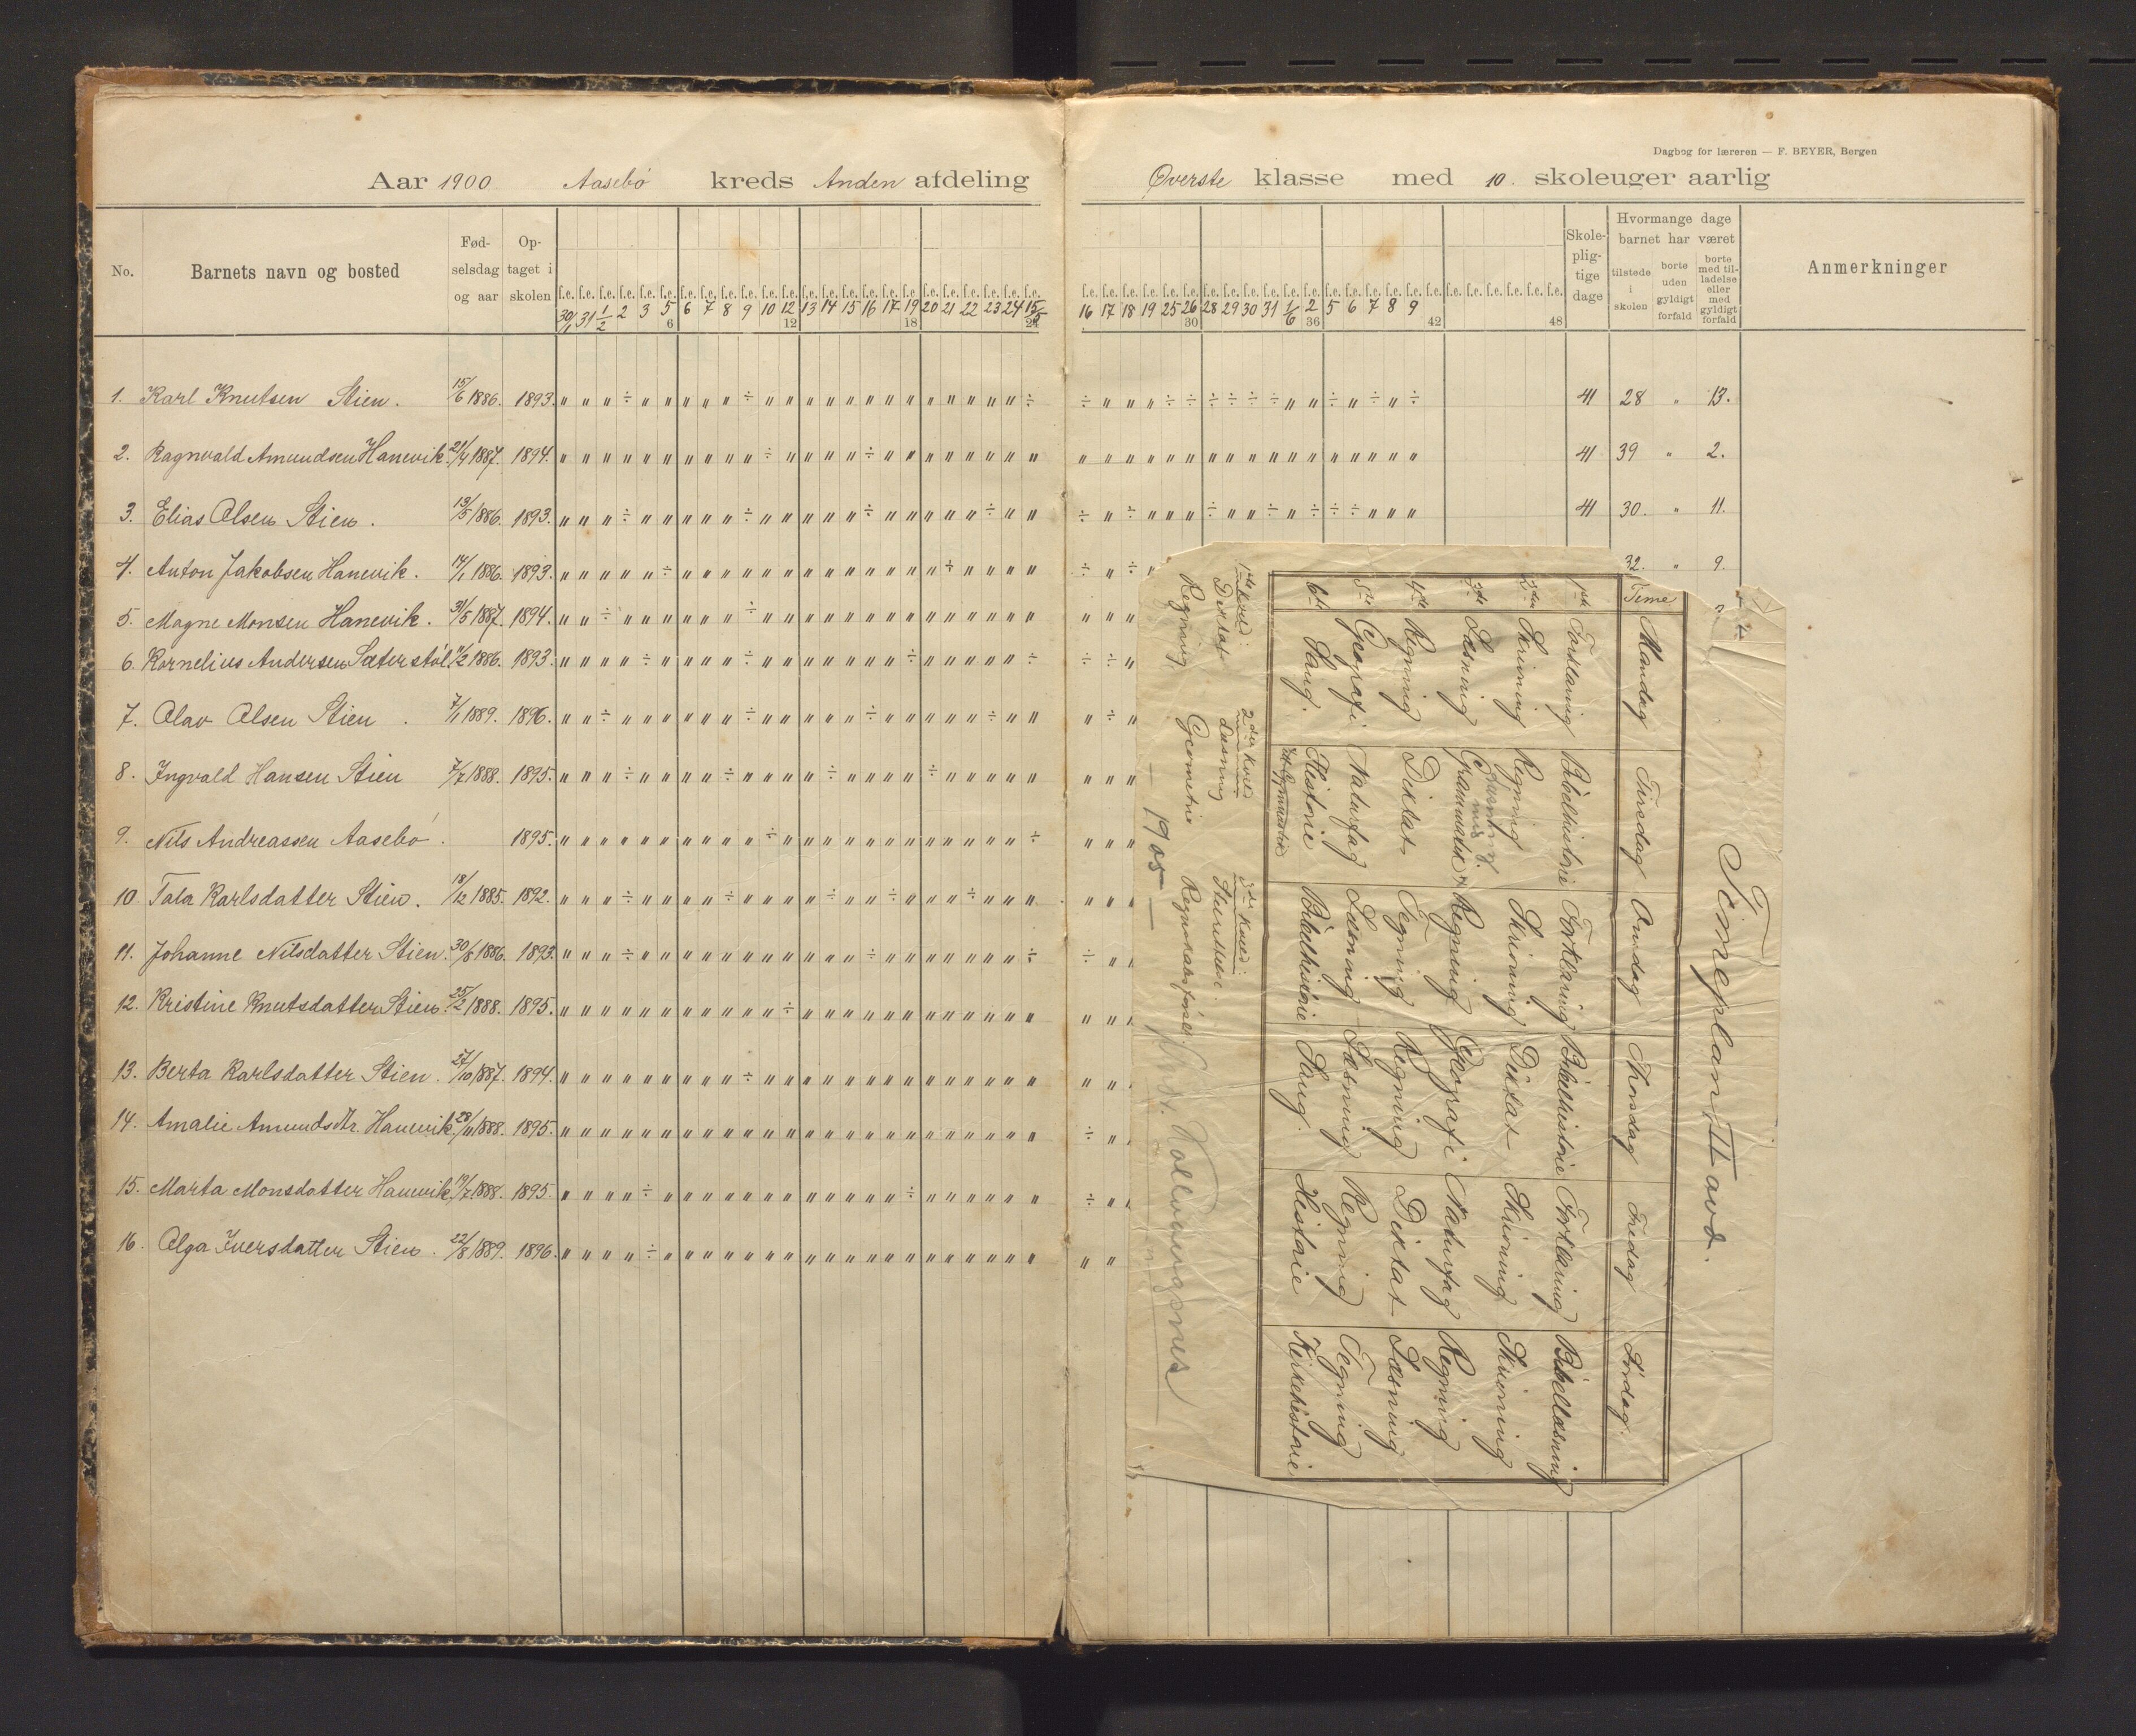 Dagbog for læreren — F. BEYER, Bergen
Aar 1900 Aasebö kreds Anden afdeling Øverste klasse med 10. skoleuger aarlig
No. Barnets navn og bosted Fød-selsdag og aar Op-taget i skolen Skole-plig-tige dage Hvormange dage barnet har været tilstede i skolen borte uden gyldigt forfald borte med til-ladelse eller med gyldigt forfald Anmerkninger
f.e. f.e. f.e. f.e. f.e. f.e. f.e. f.e. f.e. f.e. f.e. f.e. f.e. f.e. f.e. f.e. f.e. f.e. f.e. f.e. f.e. f.e. f.e. f.e. f.e. f.e. f.e. f.e. f.e. f.e. f.e. f.e. f.e. f.e. f.e. f.e. f.e. f.e. f.e. f.e. f.e. f.e. f.e. f.e. f.e. f.e. f.e. f.e.
30/1 31 1/2 2 3 5 6 7 8 9 10 12 13 14 15 16 17 19 20 21 22 23 24 15/5 16 17 18 19 25 26 28 29 30 31 1/6 2 5 6 7 8 9
6 12 18 24 30 36 42 48
1. Karl Knutsen Stien. 15/6 1886. 1893. " " " ÷ " " " " " ÷ " " " " " " " " " " " " " ÷ ÷ " " " ÷ ÷ ÷ ÷ ÷ ÷ " " ÷ " ÷ " ÷ 41 28 " 13.
2. Ragnvald Amundsen Hanevik. 21/4 1887. 1894. " " " " " " " " " " ÷ " " " " ÷ " " " " " " " " " " " " " " " " " " " " " " " " " 41 39 " 2.
3. Elias Olsen Stien. 13/5 1886. 1893. " " " ÷ " " " " " ÷ " " " " " ÷ " " " " " ÷ " " ÷ " ÷ " " " ÷ " " ÷ " ÷ ÷ ÷ " " " 41 30. " 11.
4. Anton Jakobsen Hanevik. 14/1 1886. 1893. " " " " " ÷ " " " " " " " " " " " " " ÷ " " " " ÷ " ÷ 32. " 9.
5. Magne Monsen Hanevik. 31/5 1887. 1894. " " ÷ " " " " " " ÷ " " " " " " " " " " " " " " " " "
6. Kornelius Andersen Sæterstöl. 11/2 1886. 1893. " " " " ÷ " " " " ÷ " " " " " " " ÷ " " " " " ÷ ÷ ÷ "
7. Olav Olsen Stien. 7/1 1889. 1896. " " ÷ " " " " " " ÷ " " " " " ÷ " " " " " ÷ " " " ÷ "
8. Ingvald Hansen Stien 7/7 1888. 1895. " " " ÷ " " " " ÷ " " " " ÷ " " " " ÷ " " " " " " " "
9. Nils Andreassen Aasebö. 1895. " " " " " " " " " " ÷ " " " " " " " " " " " " ÷ " " "
10 Tala Karlsdatter Stien. 18/12 1885. 1892. " " " ÷ " " " " ÷ " " " " ÷ " " ÷ " " " ÷ " " " " " "
11. Johanne Nilsdatter Stien. 30/8 1886. 1893. " " " ÷ " " " " " " " " " " " ÷ " " " " " " " ÷ ÷ " "
12. Kristine Knutsdatter Stien. 25/2 1888. 1895. " " " " " " " " " " " ÷ " " " " " " " " " " " " " " "
13. Berta Karlsdatter Stien. 27/10 1887. 1894. " " " " " " " " " ÷ " " " " " " " " " " " " " " " " "
14. Amalie Amundsdtr. Hanevik 28/11 1888. 1895. " " " " " " " " " " " " " " " " " " " " " " " " ÷ " "
15. Marta Monsdatter Hanevik. 19/7 1888. 1895. " " " " ÷ " " " " " " " " " " " " ÷ " " " " " " ÷ " "
16. Olga Iversdatter Stien. 22/8 1889. 1896. " " " " ÷ " " " " " " " " " " " " " " " " " " " " "
Timeplan II avd.
Time Mandag Tirsdag Onsdag Thorsdag Fredag Lördag.
1ste Forklaring Bibelhistorie Forklaring Bibelhistorie Forklaring Bibellæsning
2den Skrivning Regning Skrivning Diktat Skrivning Skrivning
3die Læsning Læsning med Grammatik Regning Geografi Naturfag Regning
4de Regning Diktat Tegning Regning Diktat Læsning
5te Geografi Naturfag Læsning Læsning Regning Tegning
6te Sang. Historie Bibelhistorie Sang. Historie Kirkehistorie
1ste kveld: 2den kveld 3die kveld:
Diktat Læsning
Regning Geometrie Regnskabsförsel
— 1905 —